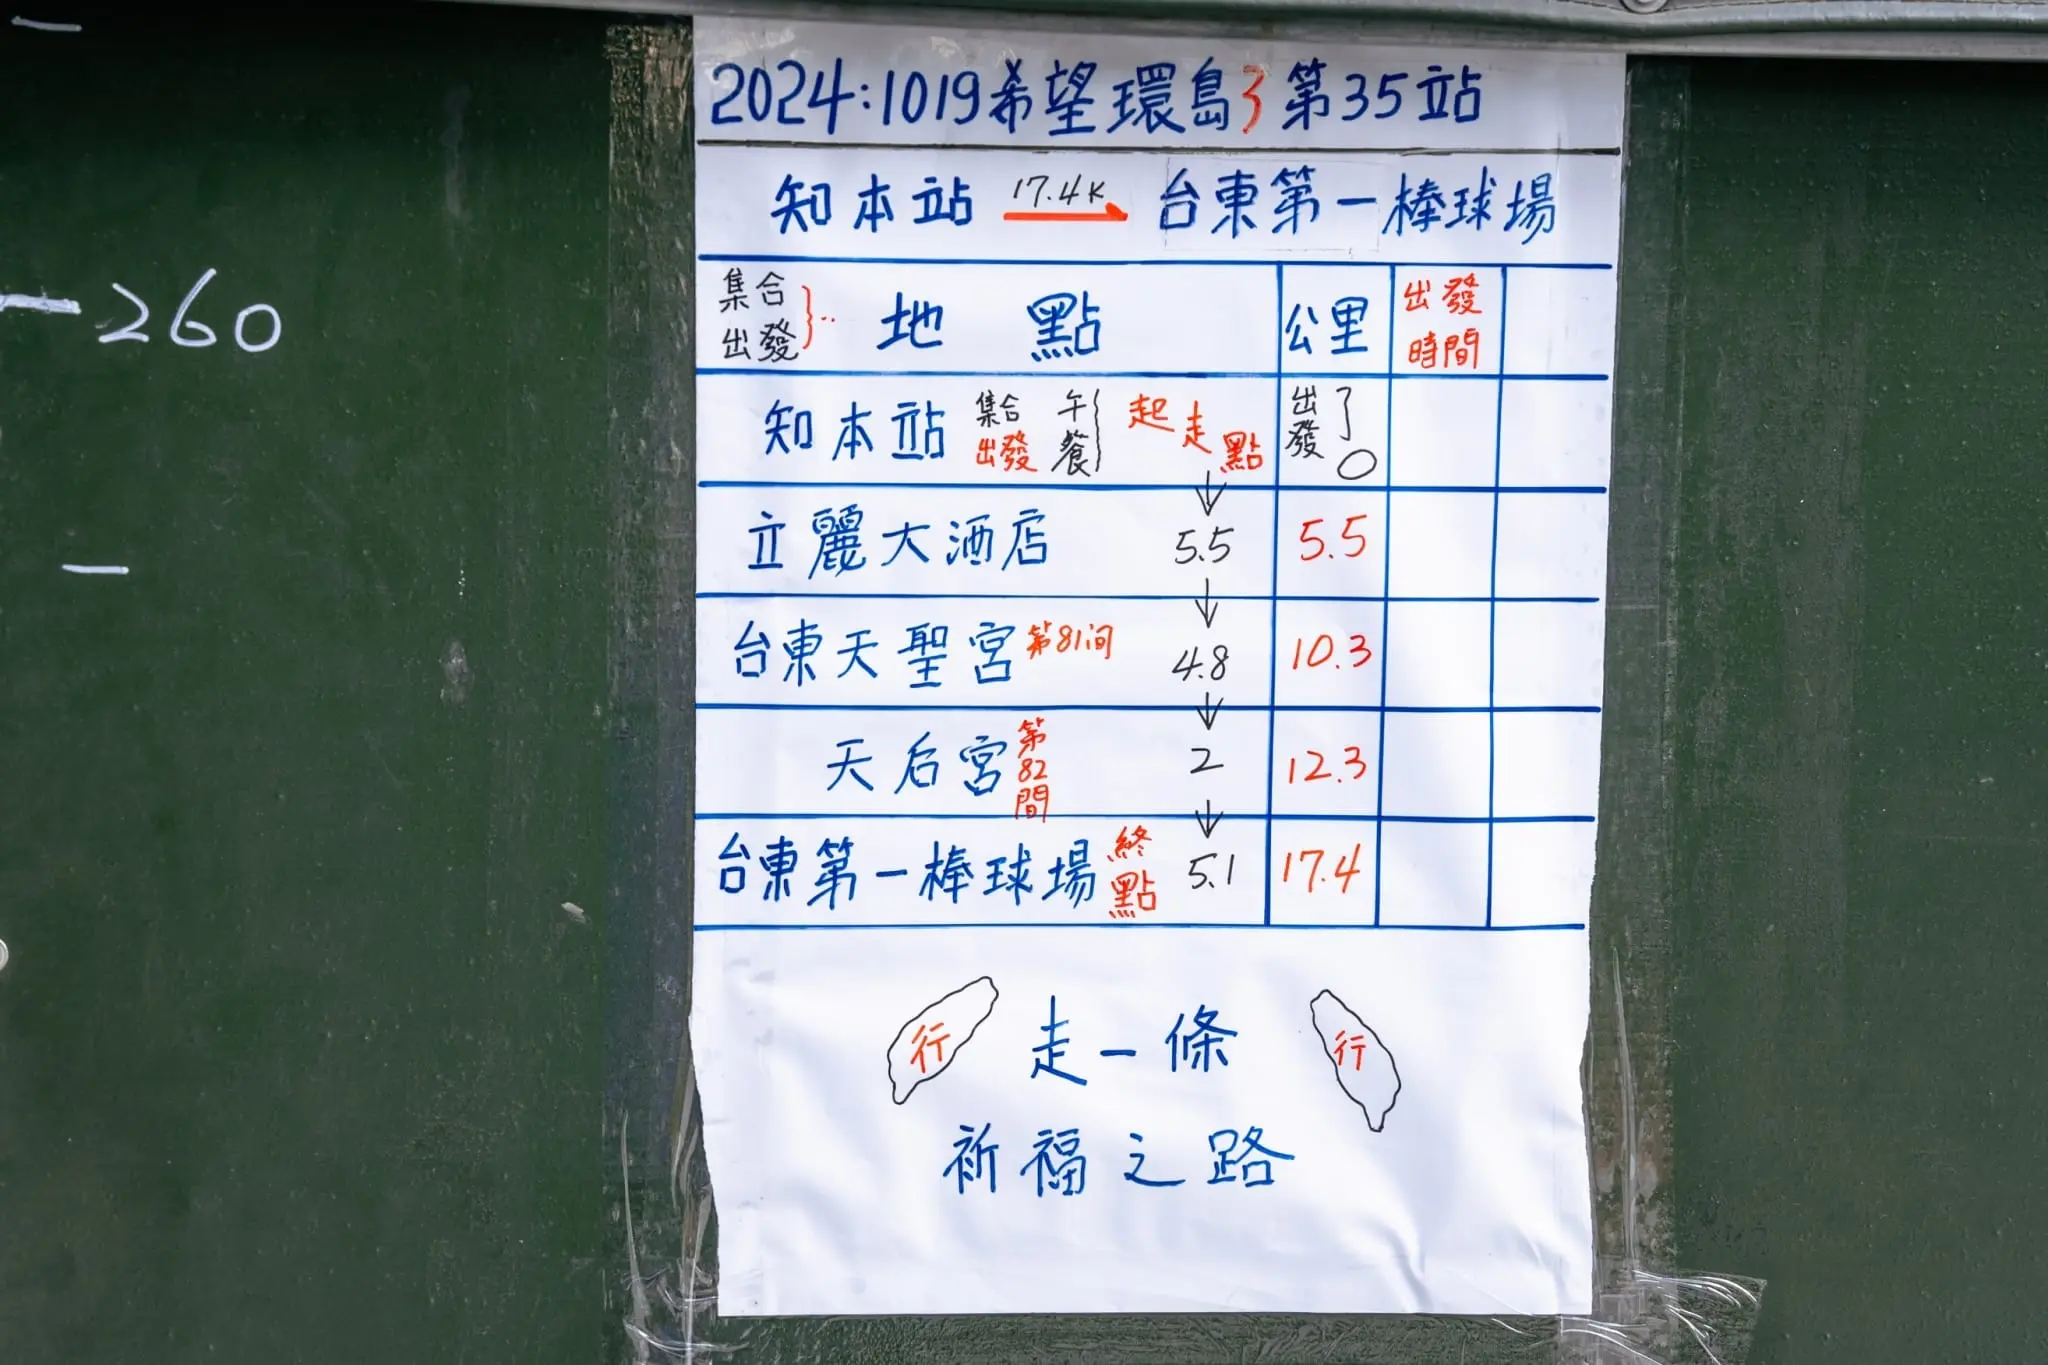 2024:1019希望環島3第35站
知本站 17.4K 台東第一棒球場
集合出發 地點 公里 出發時間
知本站 集合出發 午餐 起走點 出發了 0
立麗大酒店 5.5 5.5
台東天聖宮 第81间 4.8 10.3
天后宮 第82間 2 12.3
台東第一棒球場 終點 5.1 17.4
行 走一條 行
祈福之路
260